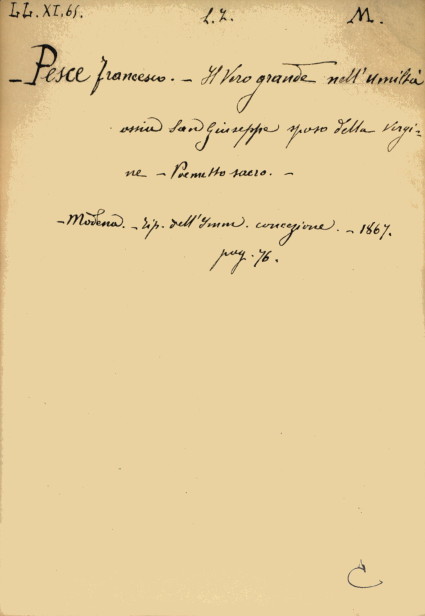 LL. XI. 65. L. Z. M.
- Pesce Francesco. - Il Vero grande nell'umiltà
ossia San Giuseppe sposo della Vergi-
ne - Poemetto sacro. -
- Modena. - Tip. dell'Imm. concezione. - 1867.
pag. 76.
C